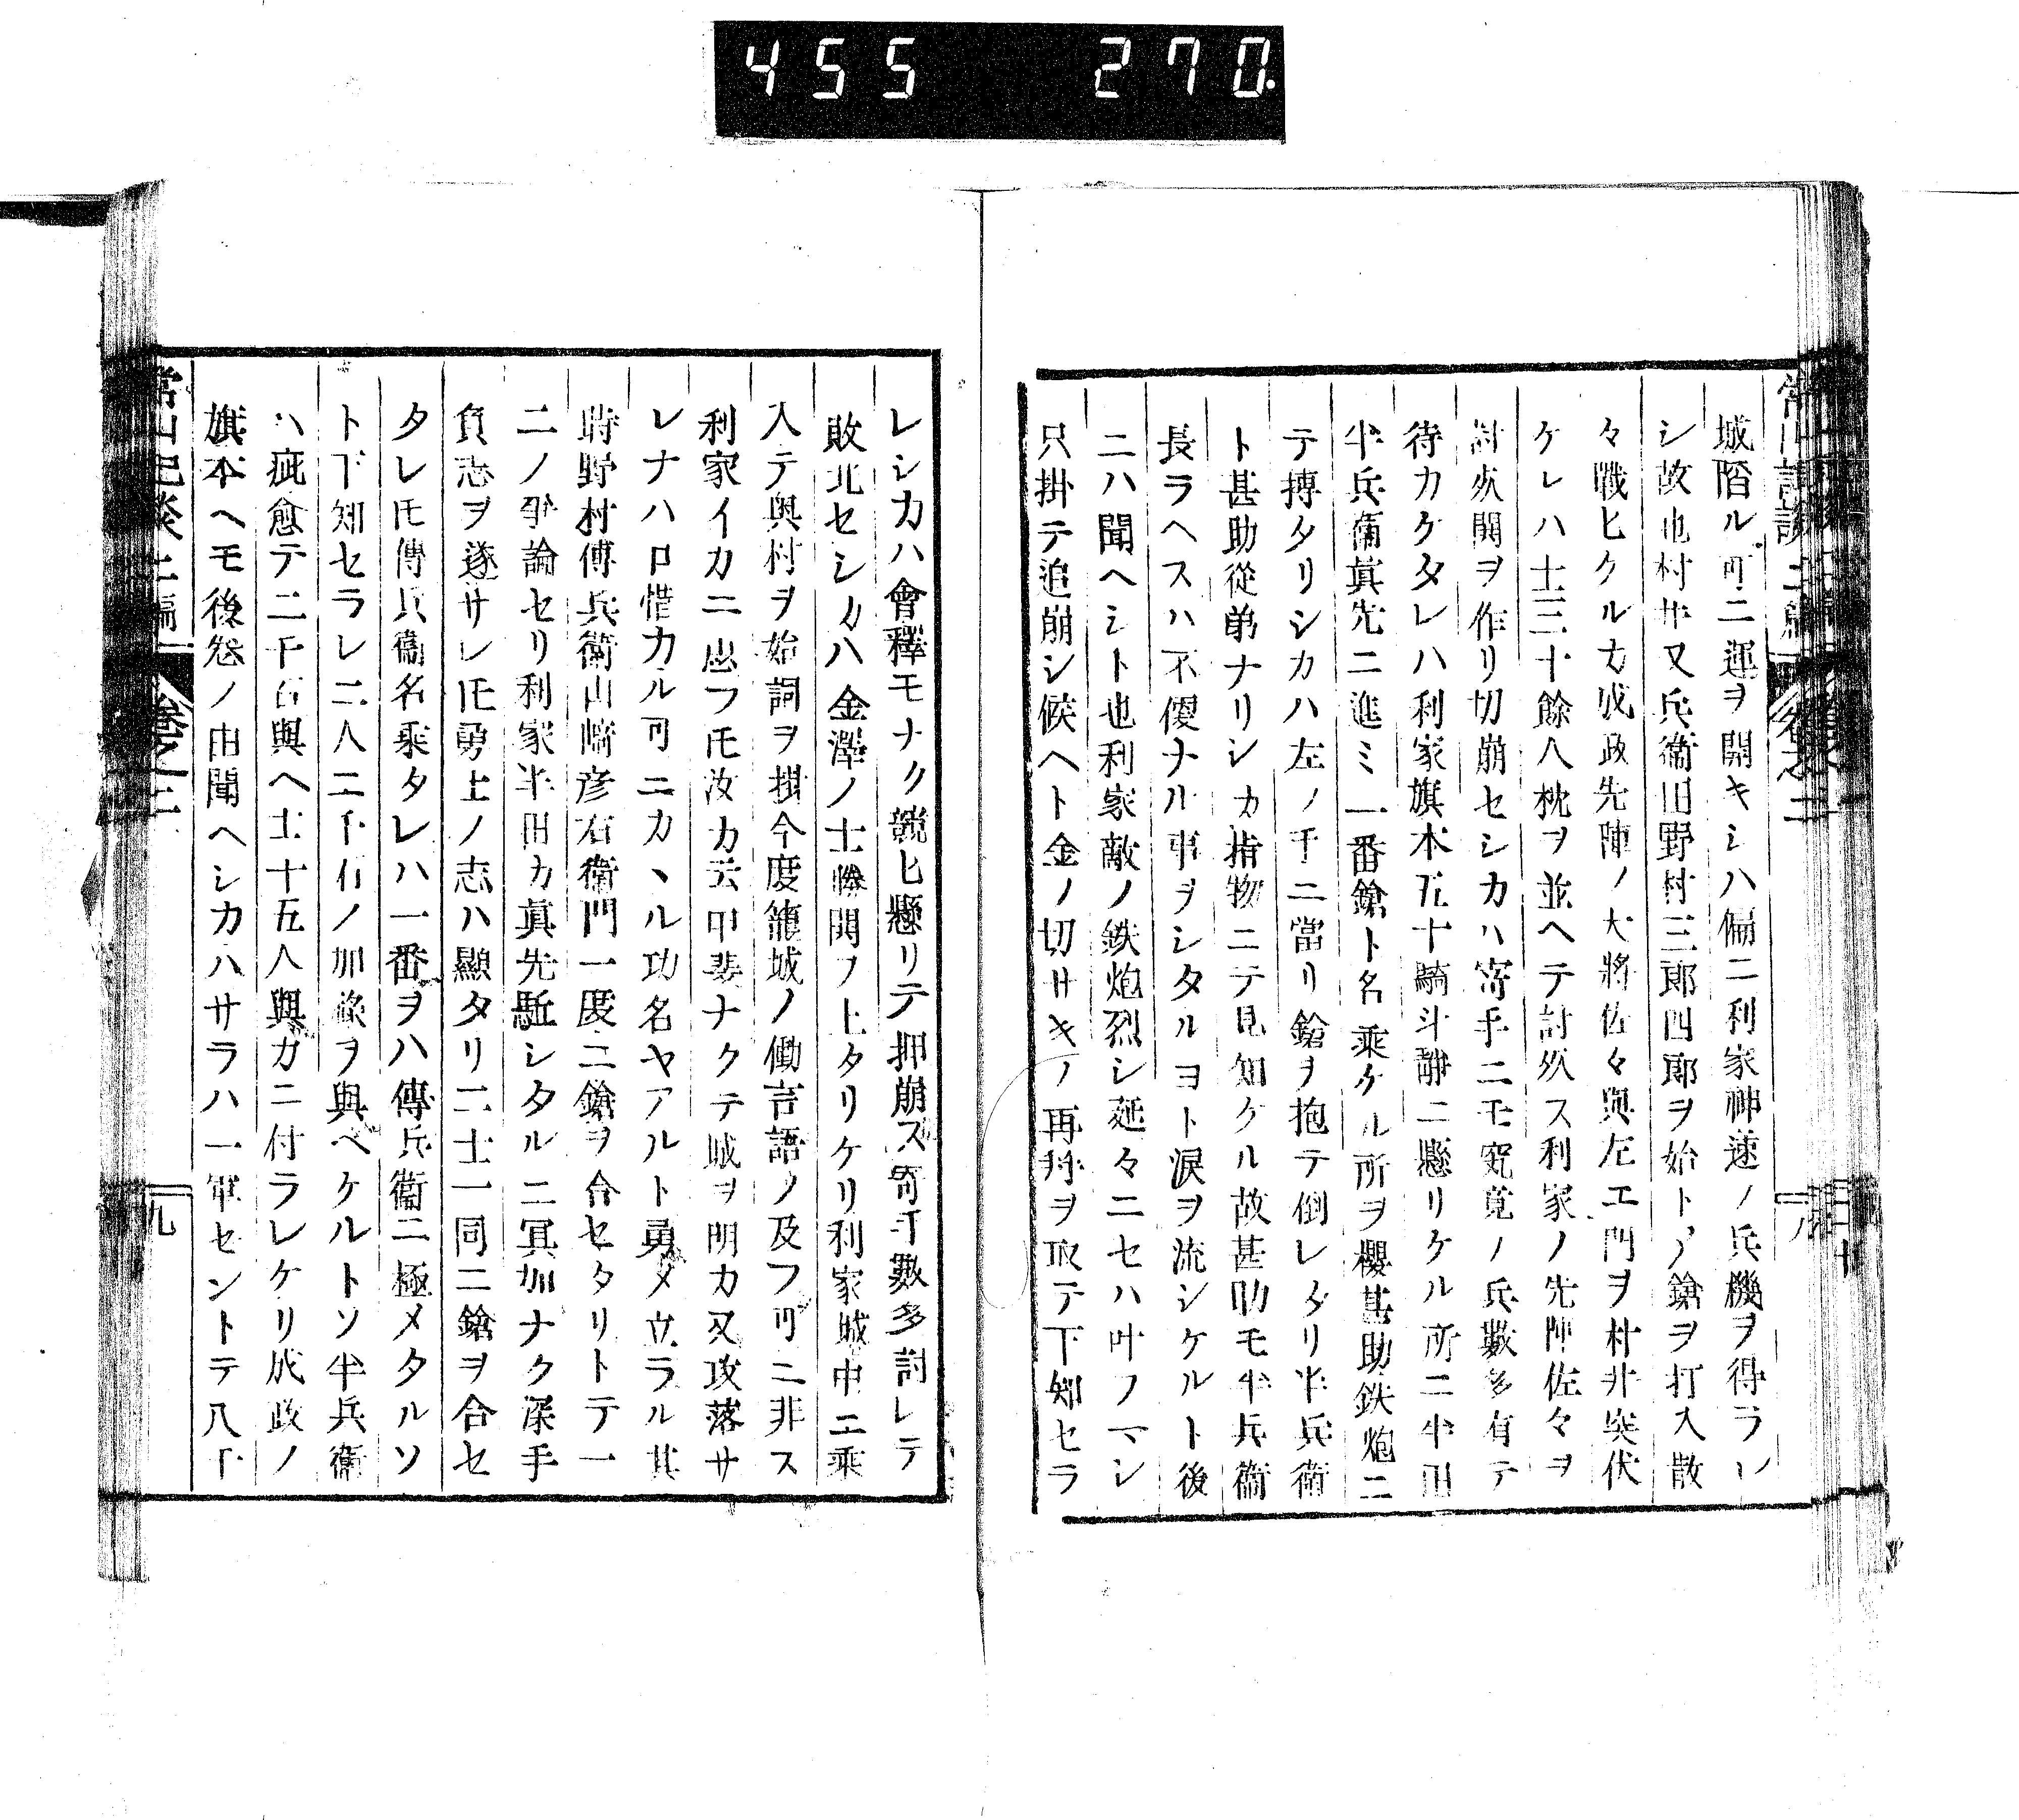 455 270
城陷ル可ニ運ヲ開キシハ偏ニ利家神速ノ兵機ヲ得ラレ
シ故也村井又兵衞旧野村三郎四郎ヲ始トノ鎗ヲ打入散
々戰ヒケルカ成政先陣ノ大將佐々與左エ門ヲ村井突伏
ケレハ士三十餘人枕ヲ並ヘテ討死ス利家ノ先陣佐々ヲ
討死鬨ヲ作リ切崩セシカハ寄手ニモ究竟ノ兵數多有テ
待カケタレハ利家旗本五十騎斗静ニ懸リケル所ニ半田
半兵衞眞先ニ進ミ一番鎗ト名乘ケル所ヲ櫻甚助鉄炮ニ
テ摶タリシカハ左ノ手ニ當リ鎗ヲ抱テ倒レタリ半兵衞
ト甚助從弟ナリシカ指物ニテ見知ケル故甚助モ半兵衞
長ラヘスハ不便ナル事ヲシタルヨト涙ヲ流シケルト後
ニハ聞ヘシト也利家敵ノ鉄炮烈シ延々ニセハ叶フマシ
只掛テ追崩シ候ヘト金ノ切サキノ再拜ヲ取テ下知セラ
レシカハ會釋モナク競ヒ懸リテ押崩ス寄手數多討レテ
敗北セシカハ金澤ノ士勝鬨ヲ上タリケリ利家城中エ乘
入テ奥村ヲ始詞ヲ掛今度籠城ノ働言語ノ及フ可ニ非ス
利家イカニ思フモ汝カ云甲斐ナクテ城ヲ明カ又攻落サ
レナハ口惜カル可ニカヽル功名ヤアルト勇メ立ラル其
時野村傳兵衞山崎彦右衞門一度ニ鎗ヲ合セタリトテ一
二ノ爭論セリ利家半田カ眞先駈シタルニ冥加ナク深手
負志ヲ遂サレ𪜈勇士ノ志ハ顯タリ二士一同ニ鎗ヲ合セ
タレ𪜈傳兵衞名乘タレハ一番ヲハ傳兵衞ニ極メタルソ
ト下知セラレ二人ニ千石ノ加祿ヲ與ベケルトソ半兵衞
ハ疵愈テ二千石與ヘ士十五人與力ニ付ラレケリ成政ノ
旗本ヘモ後怨ノ由聞ヘシカハサラハ一軍セントテ八千
常山紀談上編 卷之三 九